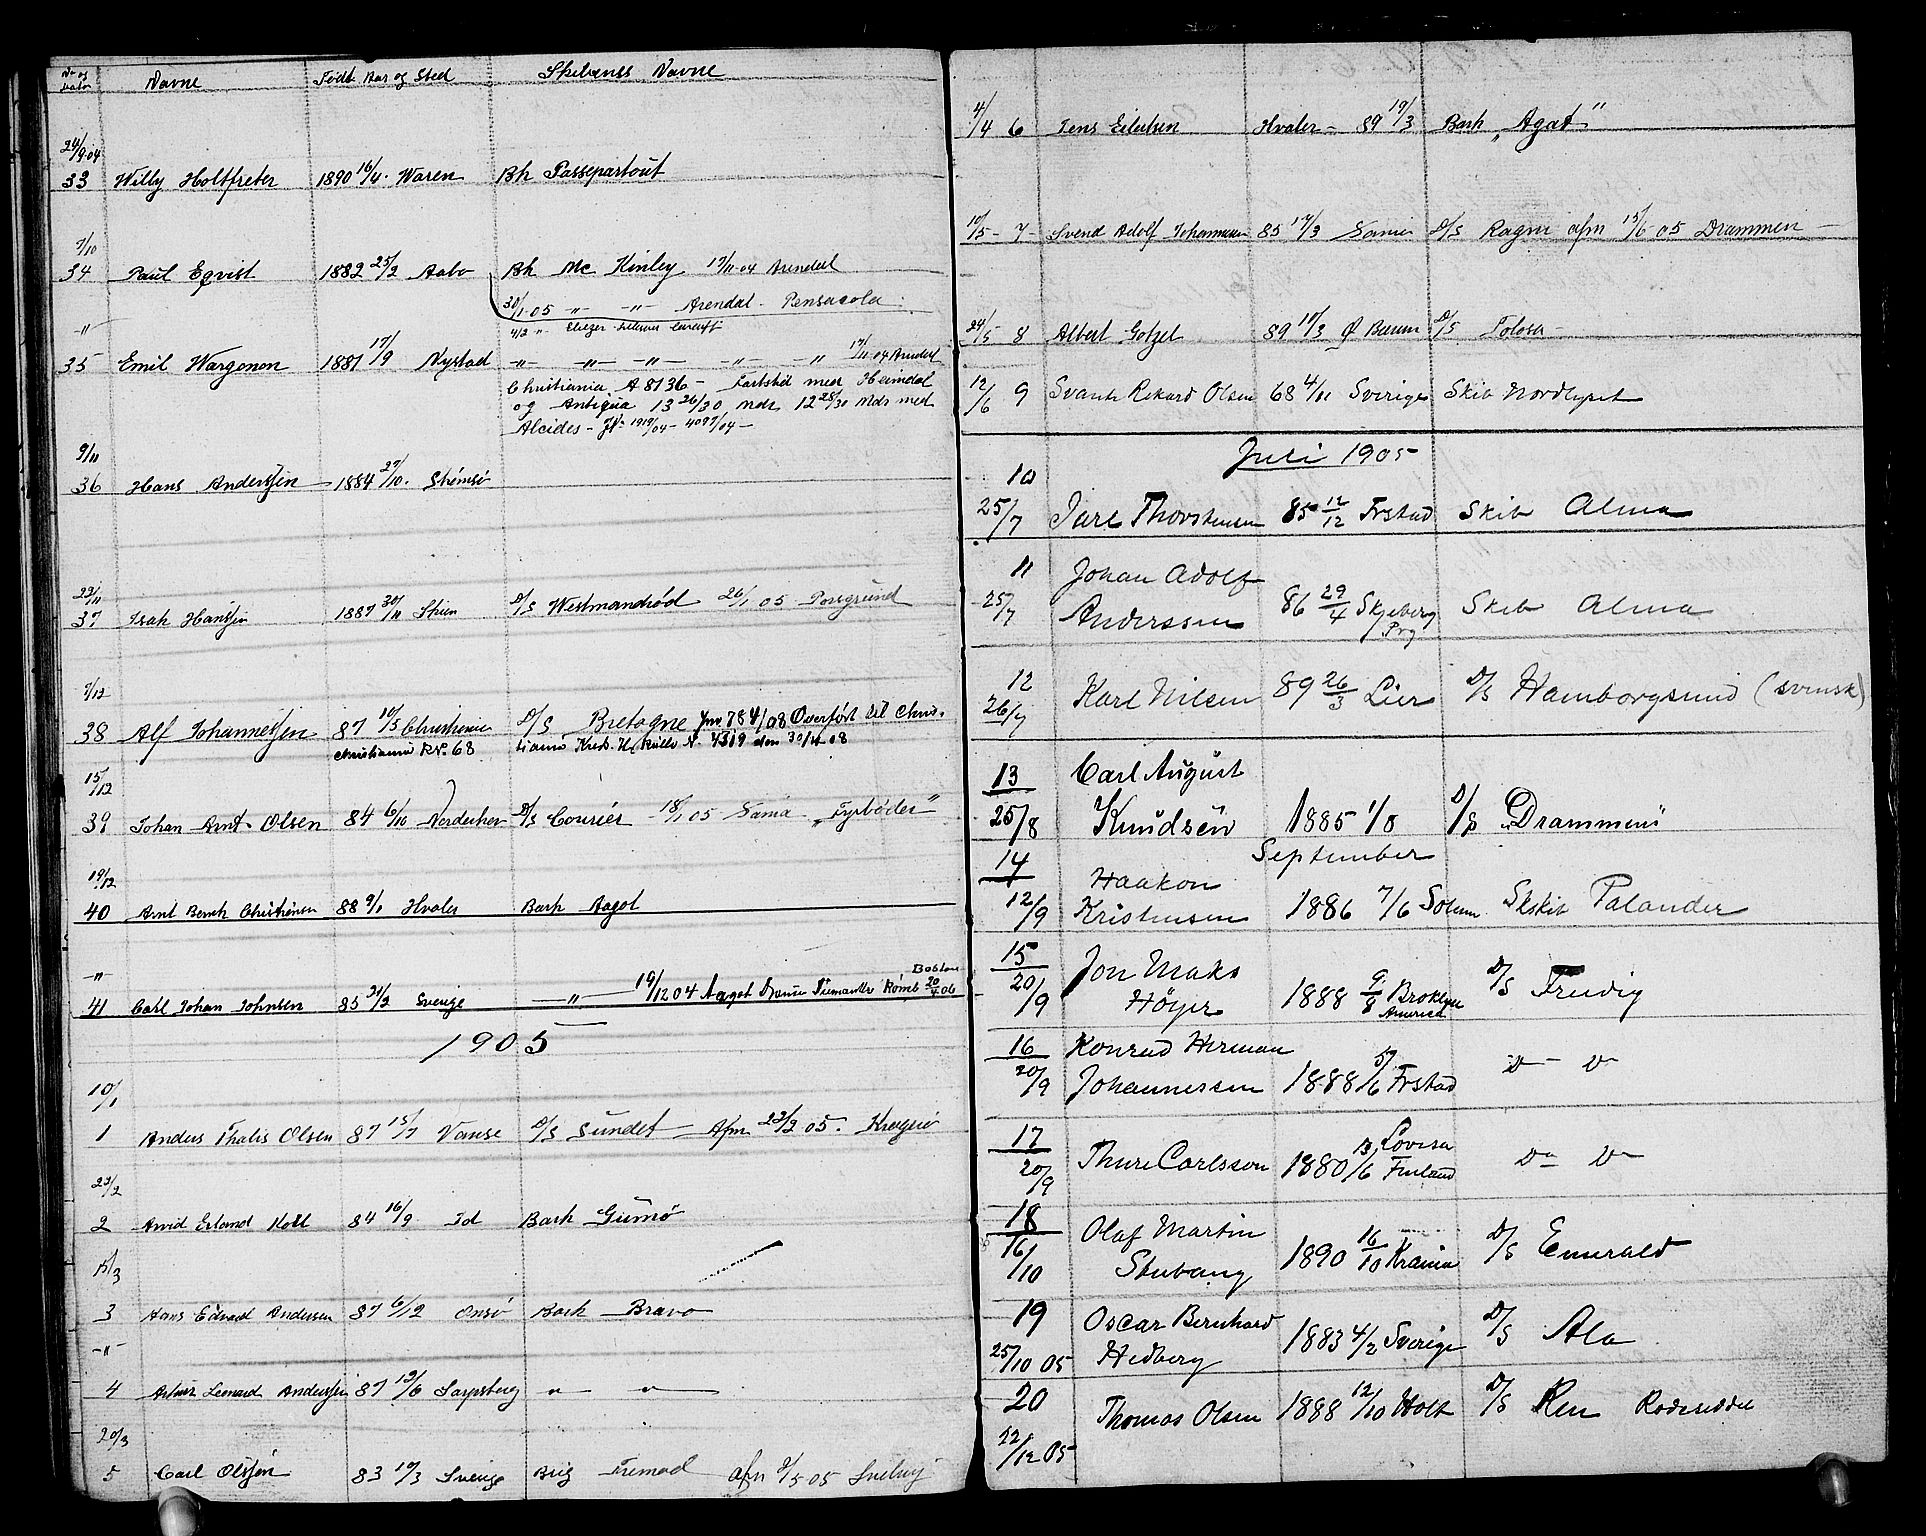 No og Dato Navne Født Aar og Sted Skibenes Navne
24/9-04
33 Willy Holtfreter 1890 16/4. Waren Bk Passepartout
7/10
34 Paul Eqvist 1882 25/2 Aabo Bk Mc Kinley 17/11-04 Arendal
30/1-05 -"- -"- Arendal - Pensacola
-"- 4/2 "-
35 Emil Wargonon 1881 17/9 Nystad -"- -"- -"- -"- -"- 17/11-04 Arendal
Christiania A 8136 - Fartstid med Heimdal
og Antiqua 13 26/30 mdr 12 28/30 mdr med
Alcides - JN- 1919/04 - 4097/04 -
9/11
36 Hans Anderssen 1884 27/10. Strømsø
23/11
37 Isak Hanssen 1887 30/11 Skien D/S Westmanrød 26/1 05 Porsgrund
7/12
38 Alf Johannessen 87 10/5 Christiania D/S Bretagne Jnr 784/08 Overført til Chris-
Christiania RN. 68 tiania Kreds. H. Rulle No 4319 den 30/11 08
15/12
39 Johan Arnt Olsen 84 6/10 D/S Courier - 18/1 05 Samia "Fyrbøder"
19/12
40 Arnt Bernh Christensen 88 9/1 Hvaler Bark Aagot
-"- Boston
41 Carl Johan Johnsen 85 24/2 Sverige -"- 19/12 04 Aagot Rømb 20/4 06
1905
10/1
1 Anders Thalis Olsen 87 15/7 Vanse D/S Sundet - Afm 22/2 05. Kragerø
23/2
2 Arvid Erland Koll 84 16/9 Id Bark Gumø
15/3
3 Hans Edvard Andersen 87 6/12 Onsø Bark Bravo
-"-
4 Artur Leonard Anderssen 87 19/6 Sarpsborg -"- -"-
20/3
5 Carl Olssøn 83 10/3 Sverige Brig Fremad afm 9/5 05 Svelvig
4/4 6 Jens Eilertsen Hvaler - 89 19/3 Bark "Agat"
10/5 - 7 - Svend Adolf Johannesen 85 17/3 D/S Ragni afm 15/6 05 Drammen -
24/5 8 Albert 89 17/3 Ø Bærum D/S Tolosa -
12/6 9 Svante Rikard Olsen 68 4/11 Sverige Skib Nordlyset
Juli 1905
10
25/7 Jarl Thorstensen 85 12/12 Frstad Skib Alma
11 Johan Adolf
25/7 Anderssen 86 29/4 Skjeberg Prg Skib Alma
12
26/7 Karl Nilsen 89 26/3 Lier D/S Hamborgsund (svensk)
13 Carl August
25/8 Knudsen 1885 1/8 D/S "Drammen"
September
14 Haakon
12/9 Kristensen 1886 7/6 Solum Skskib Palander
15 Jon Maks
20/9 Høyer 1888 9/8 America D/S Freidig
16 Konrad Herman
20/9 Johannessen 1888 5/6 Frstad Do - Do
17
20/9 Thure Carlsson 1880 13/6 Lovisa Finland Do Do
18 Olaf Martin
16/10 Stubang 1890 16/10 Krania D/S Emerald
19 Oscar Bernhard
25/10 05 Hedberg 1883 4/2 Sverige D/S Ala
20
22/12 05 Thomas Olsen 1888 12/10 Holt D/S Ren